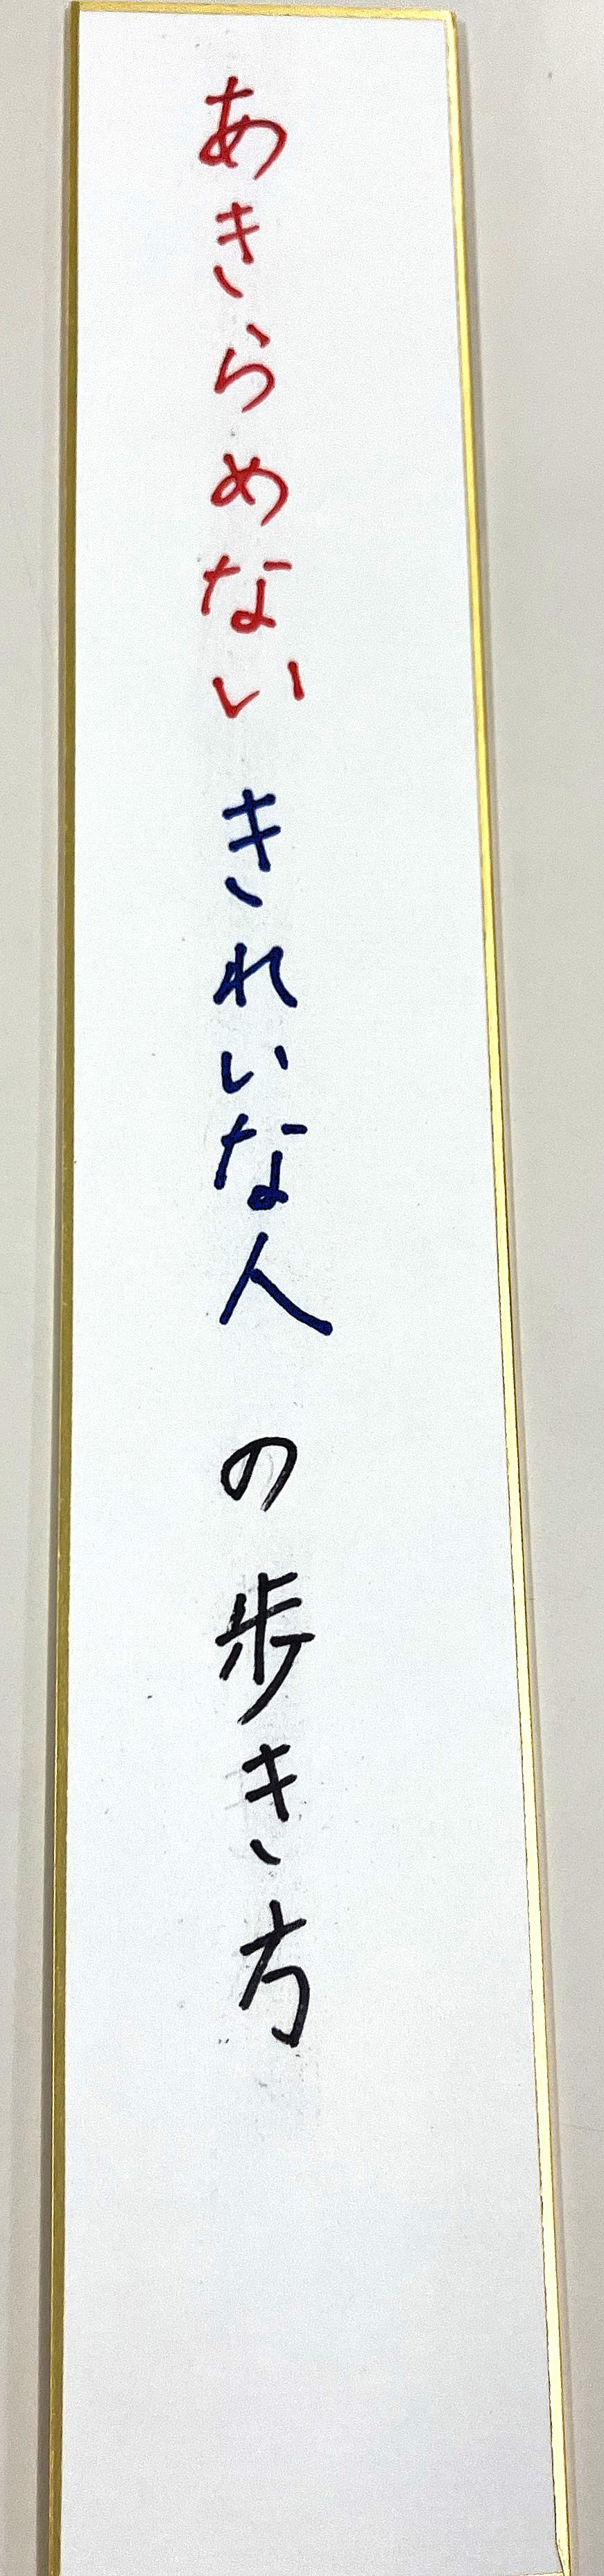 あきらめない きれいな人 の歩き方